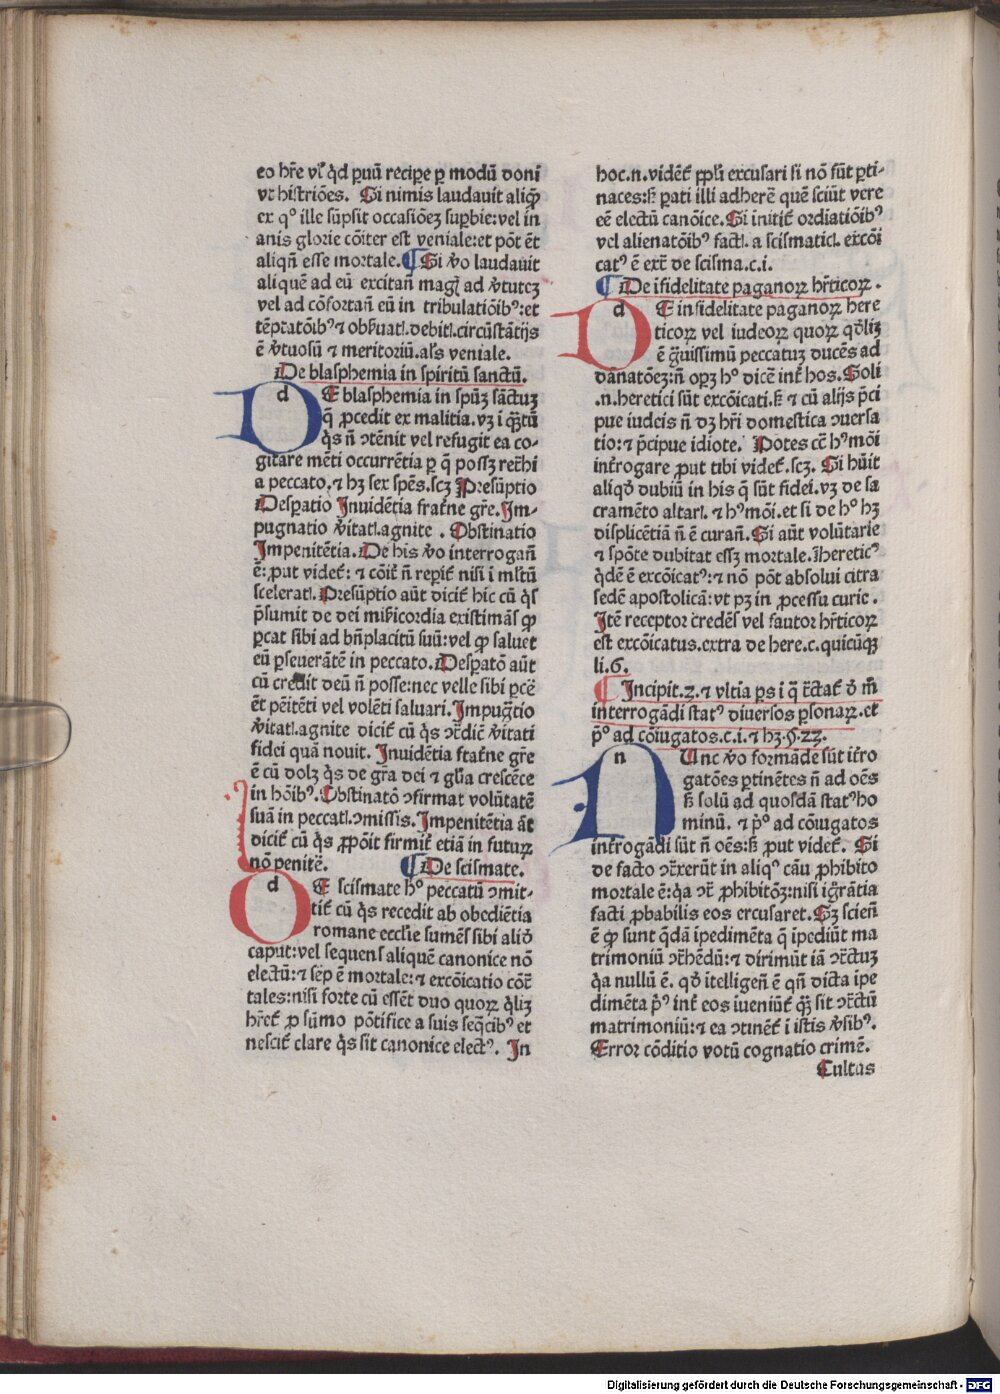 eo hr̄e vl' q̇d ꝑuū recipe ꝑ modū doni
vt histriōes. Si nimis laudauit aliqꝫ
ex qº ille sūpsit occasiōeꝫ suꝑbie: vel in
anis glorie cōiter est veniale: et pōt ēt
aliqn̄ esse mortale. ¶ Si v̾o laudauit
aliquē ad eū excitan̄ magꝭ ad v̾tuteꝫ
vel ad cōfortan̄ eū in tribulatiōibꝰ: et
tēptatōibꝰ ⁊ obẜuatꝭ. debitꝭ. circūstātijs
ē v̾tuosū ⁊ meritoriū. als̄ veniale.
De blasphemia in spiritū sanctū.
dE blasphemia in spūꝫ sāctuꝫ
q̄ ꝓcedit ex malitia. vꝫ i qꝫtū
q̇s n̄ ↄtēnit vel refugit ea co-
gitare mēti occurrētia ꝑ q̄ possꝫ retͬhi
a peccato. ⁊ hꝫ sex spēs. scꝫ Presūptio
Desꝑatio Inuidētia frat̾ne gr̄e. Im-
pugnatio v̾itatꝭ. agnite. Obstinatio
Impenitētia. De his v̾o interrogan̄
ē: ꝓut videt᷑: ⁊ cōit̾ n̄ reꝑit᷑ nisi i mltū
sceleratꝭ. Presūptio aūt dicit᷑ hic cū q̇s
p̄sumit de dei mīcͥcordia existimās ꝙ
ꝑcat sibi ad bn̄placitū suū: vel ꝙ saluet
eū ꝑseuerātē in peccato. Desꝑatō aūt
cū credit deū n̄ posse: nec velle sibi ꝑcē
ēt pēitēti vel volēti saluari. Impug̅tio
v̾itatꝭ. agnite dicit᷑ cū q̇s ↄͬdic̄ v̾itati
fidei quā nouit. Inuidētia frat̾ne gr̄e
ē cū dolꝫ q̇s de gr̄a dei ⁊ gl̄ia crescēce
in hōibꝰ. Obstinatō ↄfirmat volūtatē
suā in peccatꝭ. ↄmissis. Impenitētia āt
dicit᷑ cū q̇s ꝓpōit firmit̾ etiā in futuꝝ
nō penite̅. ¶ De scismate.
dE scismate hº peccatū ↄmit-
tit᷑ cū q̇s recedit ab obediētia
romane eccl̄ie sumēs sibi aliō
caput: vel sequens aliquē canonice nō
electū: ⁊ sēꝑ ē mortale: ⁊ excōicatio cōt̾
tales: nisi forte cū essēt duo quoꝝ q̇lꝫ
hr̄et᷑ ꝓ sūmo pōtifice a suis seq̄cibꝰ et
nescit᷑ clare q̇s sit canonice electꝰ. In
hoc. n. videt᷑ ꝓpl̄i excusari si nō sūt ꝑti-
naces: ẜ ꝑati illi adhere̅ quē sciūt vere
eē electū canōice. Si initit᷑ ordiatiōibꝰ
vel alienatōibꝰ factꝭ. a scismaticꝭ. excōi
catꝰ ē ext̾ de scisma. c. i.
¶ De ifidelitate paganoꝝ hr̄ticoꝝ.
dE infidelitate paganoꝝ here
ticoꝝ vel iudeoꝝ quoꝝ q̇dlꝫ
ē gͣuissimū peccatuꝫ ducēs ad
dānatōeꝫ: n̄ opꝫ hº dice̅ int̾ hos. Soli
.n. heretici sūt excōicati. ẜ ⁊ cū alijs p̄ci
pue iudeis n̄ dꝫ hr̄i domestica ↄuersa
tio: ⁊ p̄cipue idiote. Potes eē hꝰmōi
int̾rogare ꝓut tibi videt᷑. scꝫ. Si hūit
aliqō dubiū in his q̄ sūt fidei. vꝫ de sa
cramēto altarꝭ. ⁊ hꝰmōi. et si de hº hꝫ
displicētiā n̄ ē curan̄. Si aūt volūtarie
⁊ spōte dubitat essꝫ mortale. Ihereticꝰ
q̇dē ē excōicatꝰ: ⁊ nō pōt absolui citra
sedē apostolicā: vt pꝫ in ꝓcessu curie.
Itē receptor credēs vel fautor hr̄ticoꝝ
est excōicatus. extra de here. c. quicūqꝫ
li. 6.
¶ Incipit. 2. ⁊ vltīa ꝑs i q̄ tͬctat᷑ ō m̄
interrogādi statꝰ diuersos ꝑsonaꝝ. et
p̄º ad cōiugatos. c. i. ⁊ hꝫ. §. 22.
nUnc v̾o formāde sūt it̾ro
gatōes ꝑtinētes n̄ ad oēs
ẜ solū ad quosdā statꝰ ho
minū. ⁊ p̄º ad cōiugatos
int̾rogādi sūt n̄ oēs: ẜ ꝓut videt᷑. Si
de facto ↄͬxerūt in aliqº cāu ꝓhibito
mortale ē: q̇a ↄt̾ ꝓhibitōꝫ: nisi igͬrātia
facti ꝓbabilis eos excusaret. Sꝫ scien̄
ē ꝙ sunt q̇dā ipedimēta q̄ ipediūt ma
trimoniū ↄͬhēdū: ⁊ dirimūt iā ↄͬctuꝫ
q̇a nullū ē. qō itelligen̄ ē qn̄ dicta ipe
dimēta p̄ꝰ int̾ eos iueniūt᷑ qꝫ sit ↄͬctū
matrimoniū: ⁊ ea ↄtinēt᷑ i istis v̾sibꝰ.
Error cōditio votū cognatio crimē.
Cultus
Digitalisierung gefördert durch die Deutsche Forschungsgemeinschaft - DFG